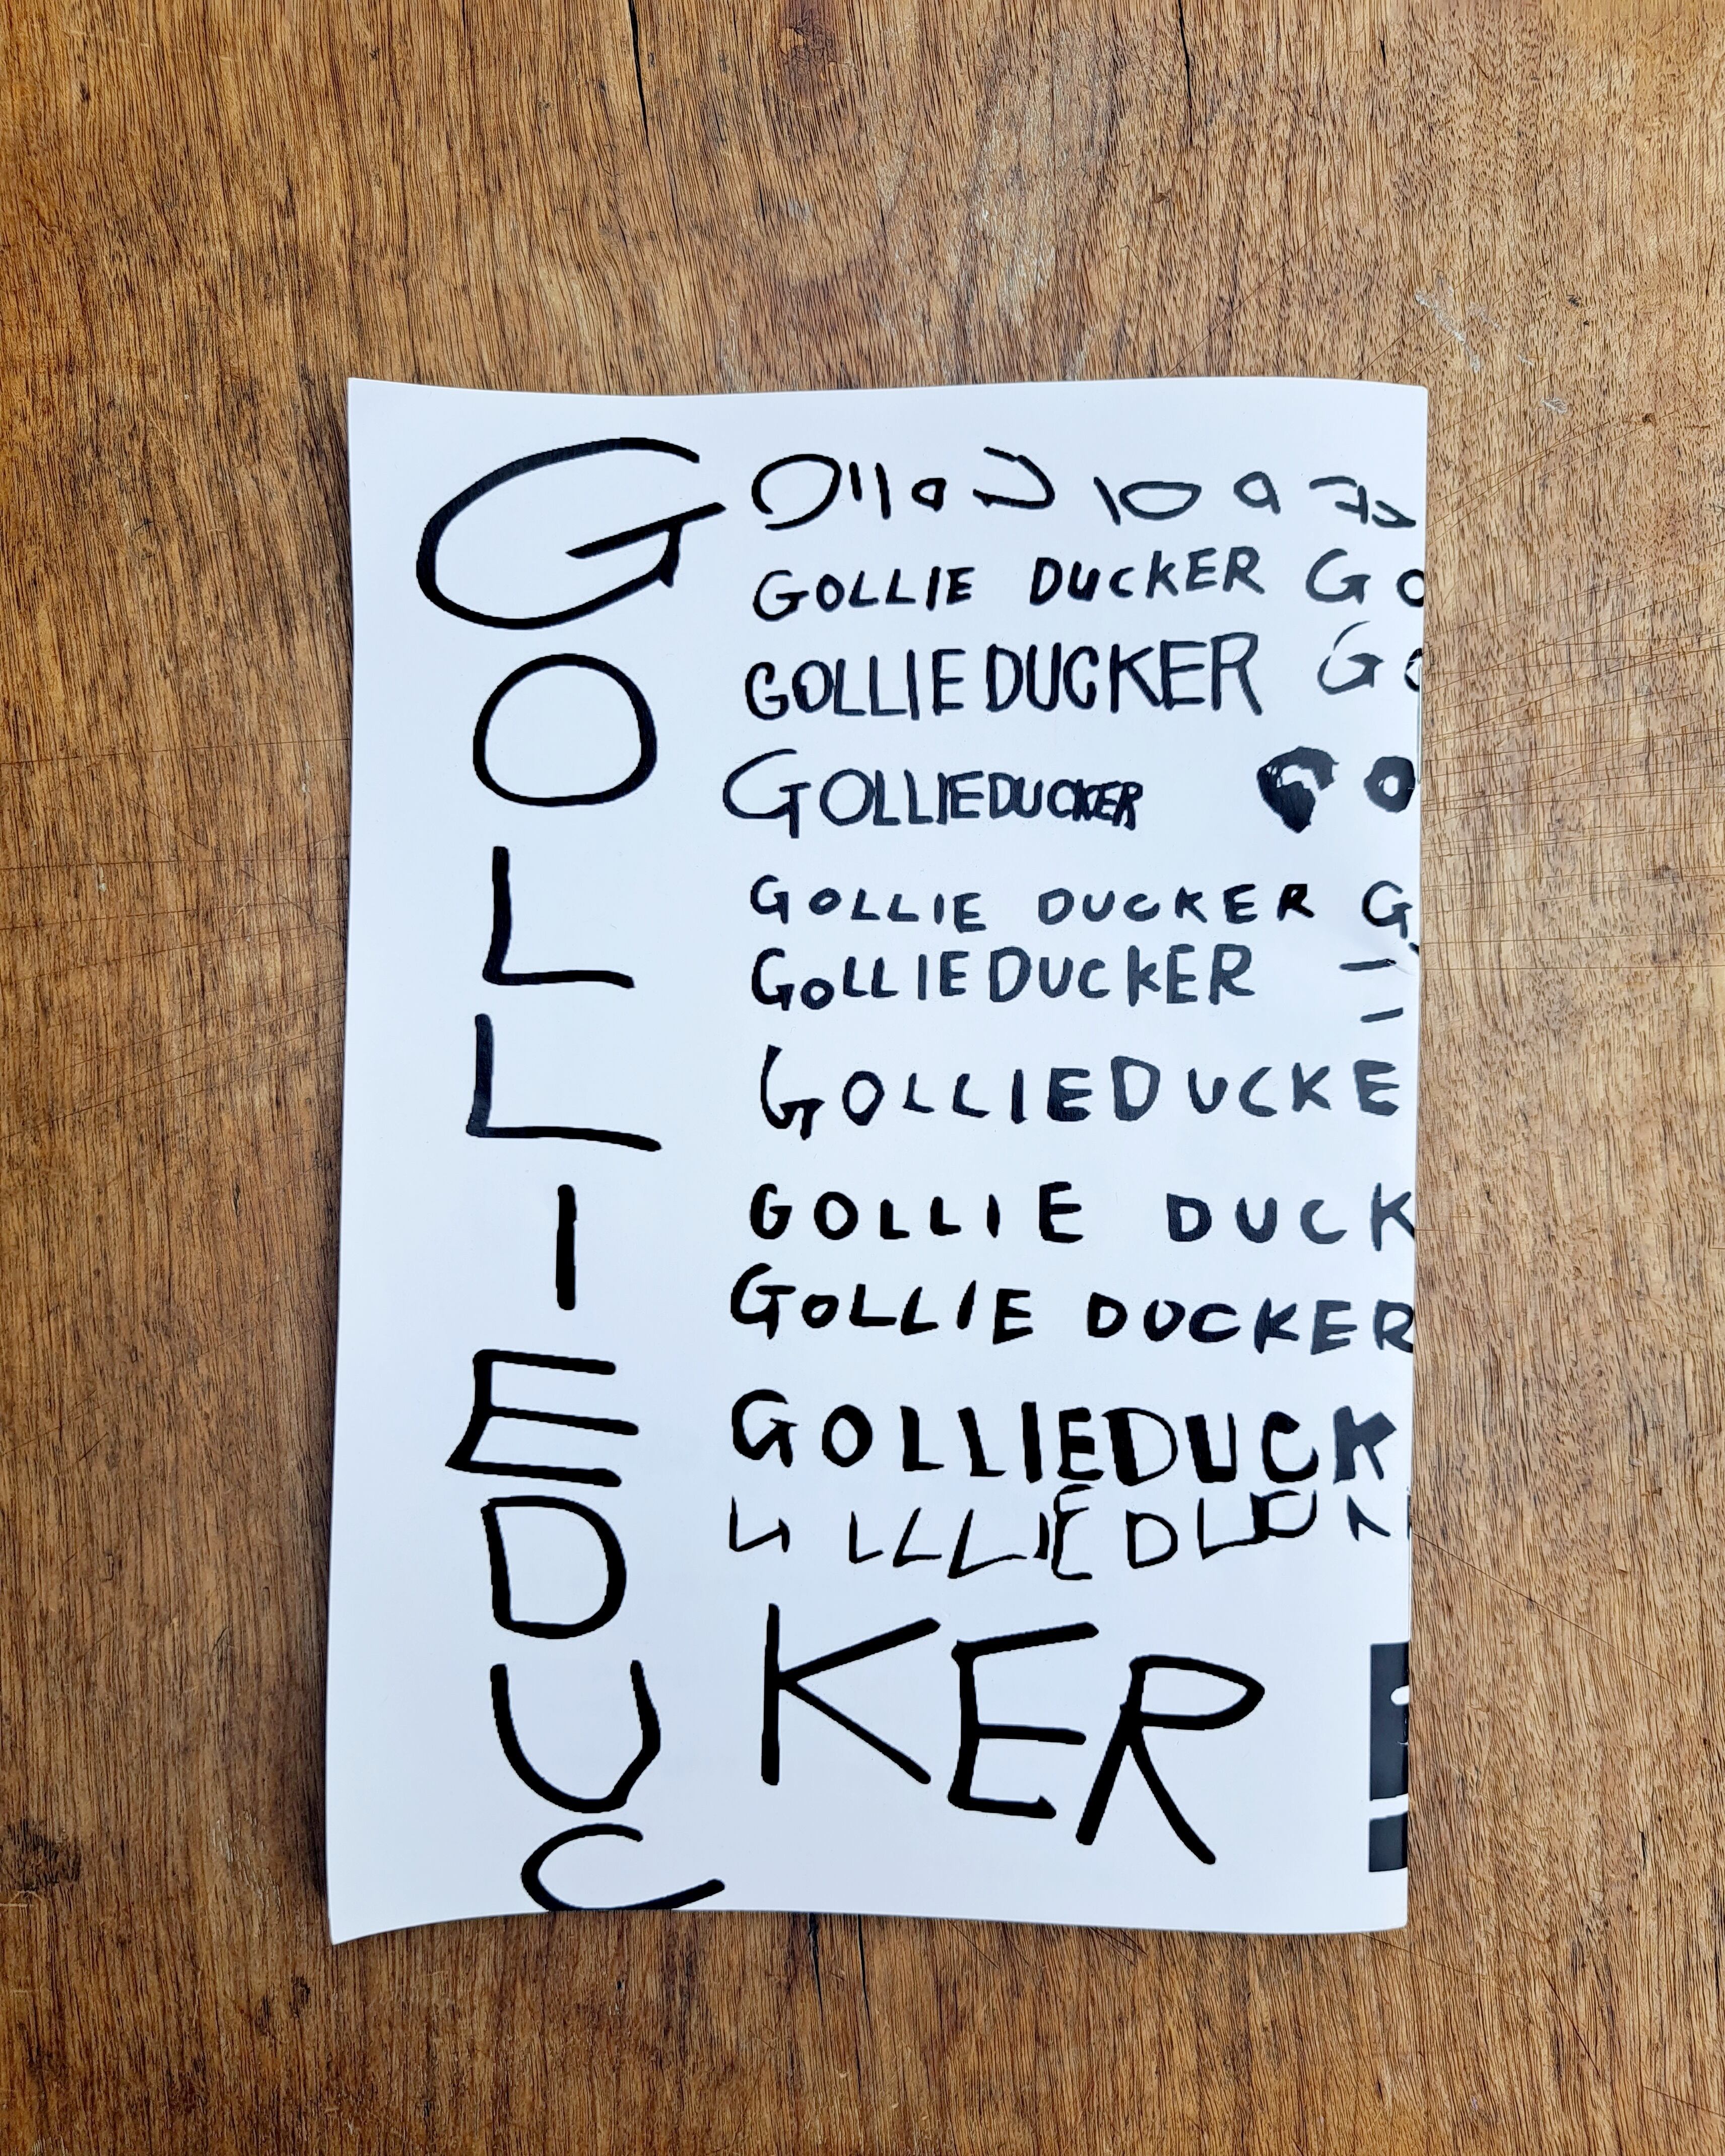 GOLLIEDUC
GOLLIE DUCKER GO
GOLLIE DUCKER GO
GOLLIEDUCKER
GOLLIE DUCKER G
GOLLIEDUCKER
GOLLIEDUCKE
GOLLIE DUCK
GOLLIE DUCKER
GOLLIEDUCK
KER